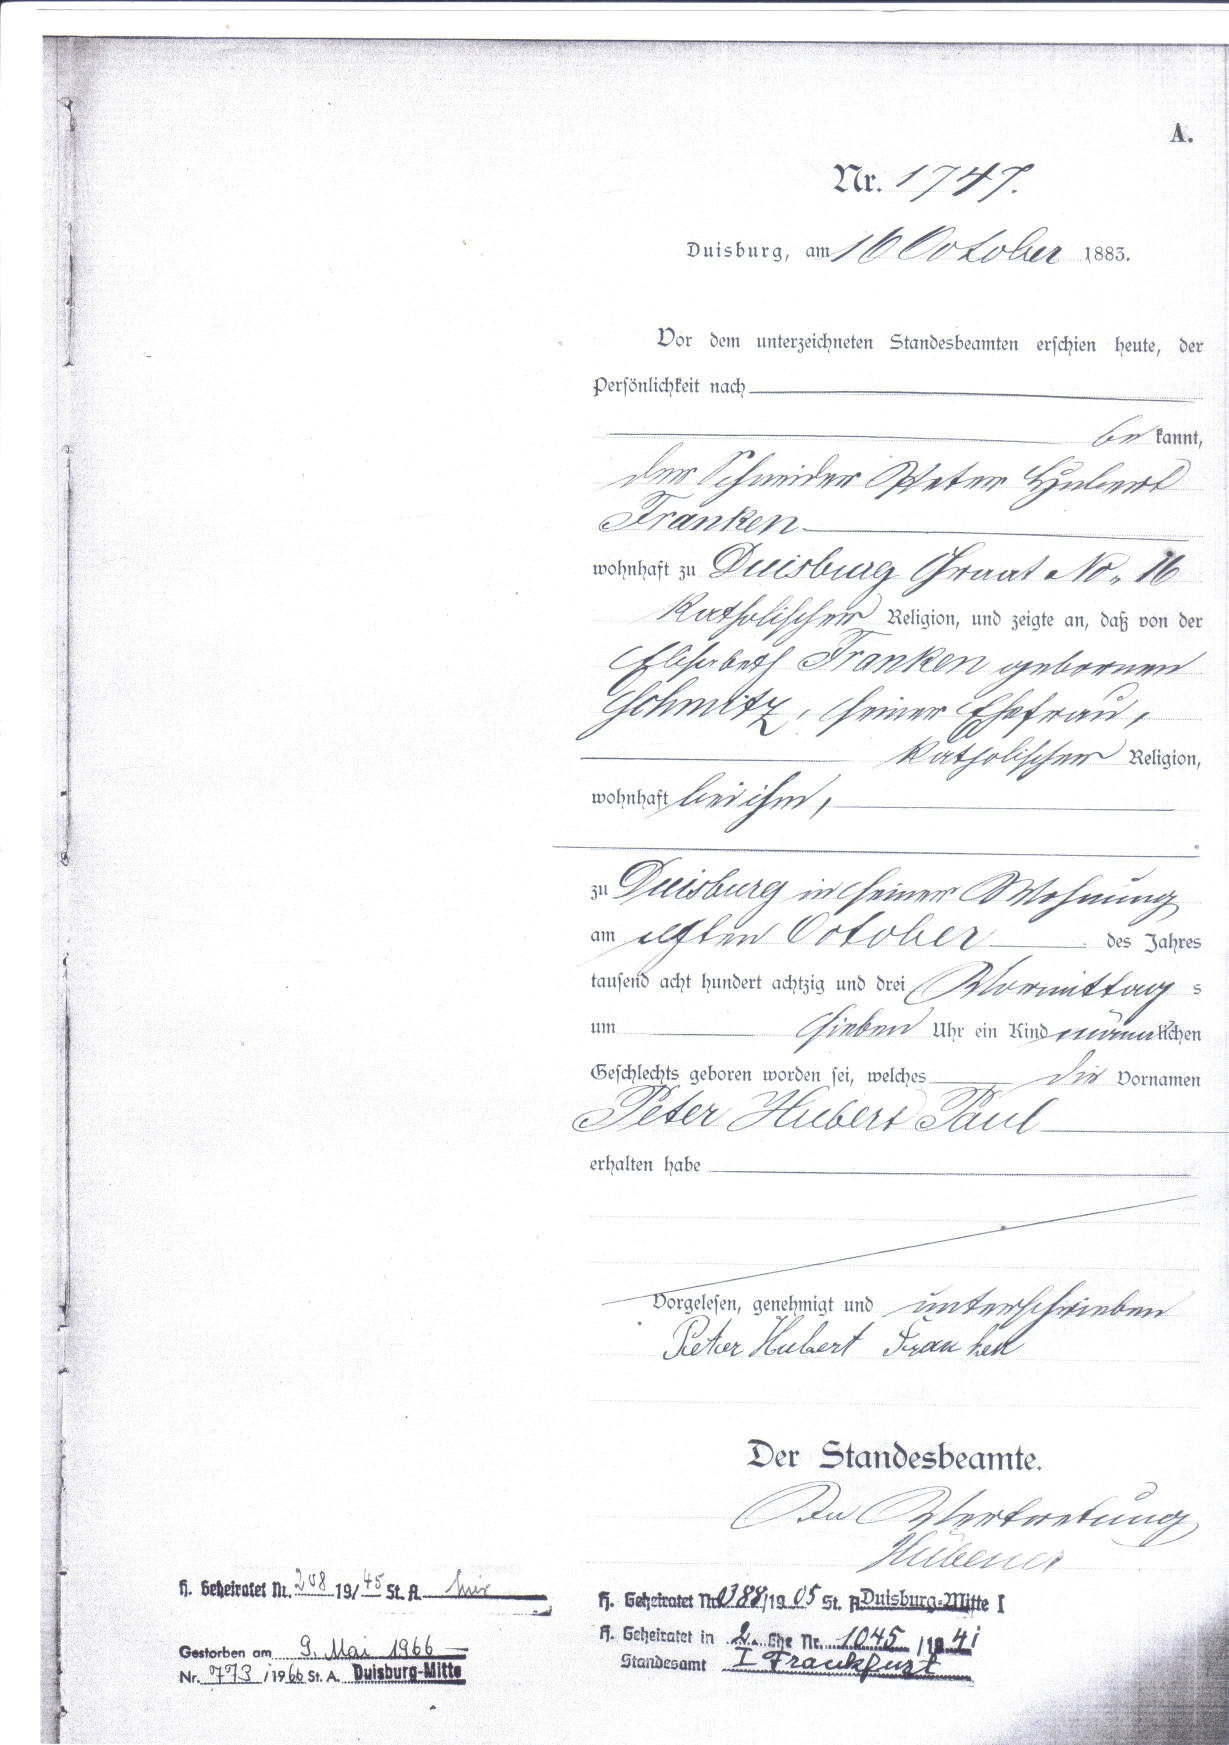 A.
Nr. 1747.
Duisburg, am 16 October 1883.
Vor dem unterzeichneten Standesbeamten erschien heute, der
Persönlichkeit nach
be kannt,
der Schneider Peter Hubert
Franken
wohnhaft zu Duisburg No. 16
katholischer Religion, und zeigte an, daß von der
Elisabeth Franken gebornen
Schmitz, seiner Ehefrau,
katholischer Religion,
wohnhaft bei ihm,
zu Duisburg in seiner Wohnung
am elften October des Jahres
tausend acht hundert achtzig und drei Vormittag s
um sieben Uhr ein Kind männlichen
Geschlechts geboren worden sei, welches die Vornamen
Peter Hubert Paul
erhalten habe
Vorgelesen, genehmigt und unterschrieben
Peter Hubert Franken
Der Standesbeamte.
In Vertretung
H. Geheiratet Nr. 208 19/45 St. A. hier
Gestorben am 9. Mai 1966
Nr. 773 /1966 St. A. Duisburg-Mitte
H. Geheiratet Nr. 0388/1905 St. A Duisburg-Mitte I
H. Geheiratet in 2. Ehe Nr. 1045 /1941
Standesamt I Frankfurt